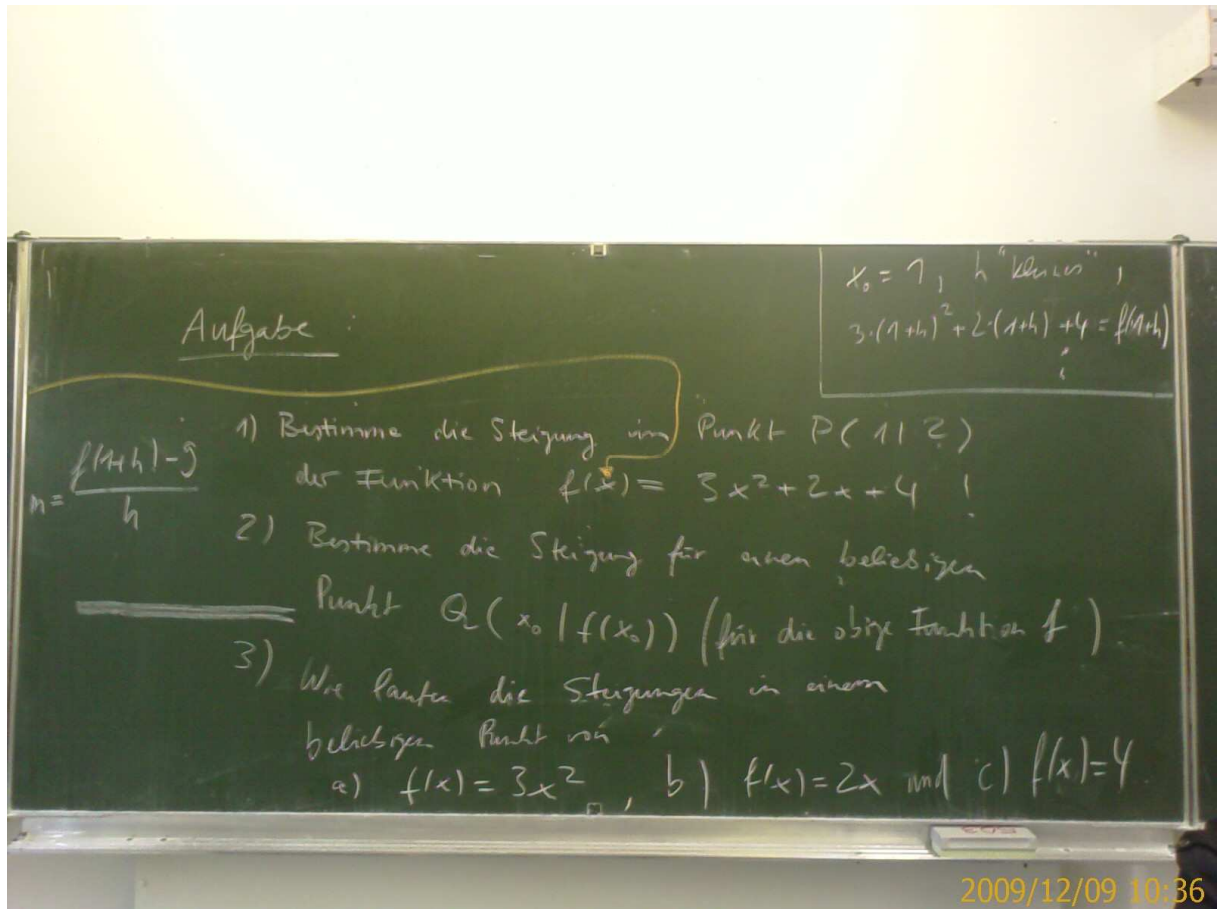 x₀ = 1, h "kleines",
3·(1+h)² + 2·(1+h) + 4 = f(1+h)
Aufgabe:
1) Bestimme die Steigung im Punkt P(1|?)
der Funktion f(x) = 3x² + 2x + 4 !
m = (f(1+h) - 9) / h
2) Bestimme die Steigung für einen beliebigen
Punkt Q(x₀ | f(x₀)) (für die obige Funktion f).
3) Wie lauten die Steigungen in einem
beliebigen Punkt von
a) f(x) = 3x², b) f(x) = 2x und c) f(x) = 4.
2009/12/09 10:36